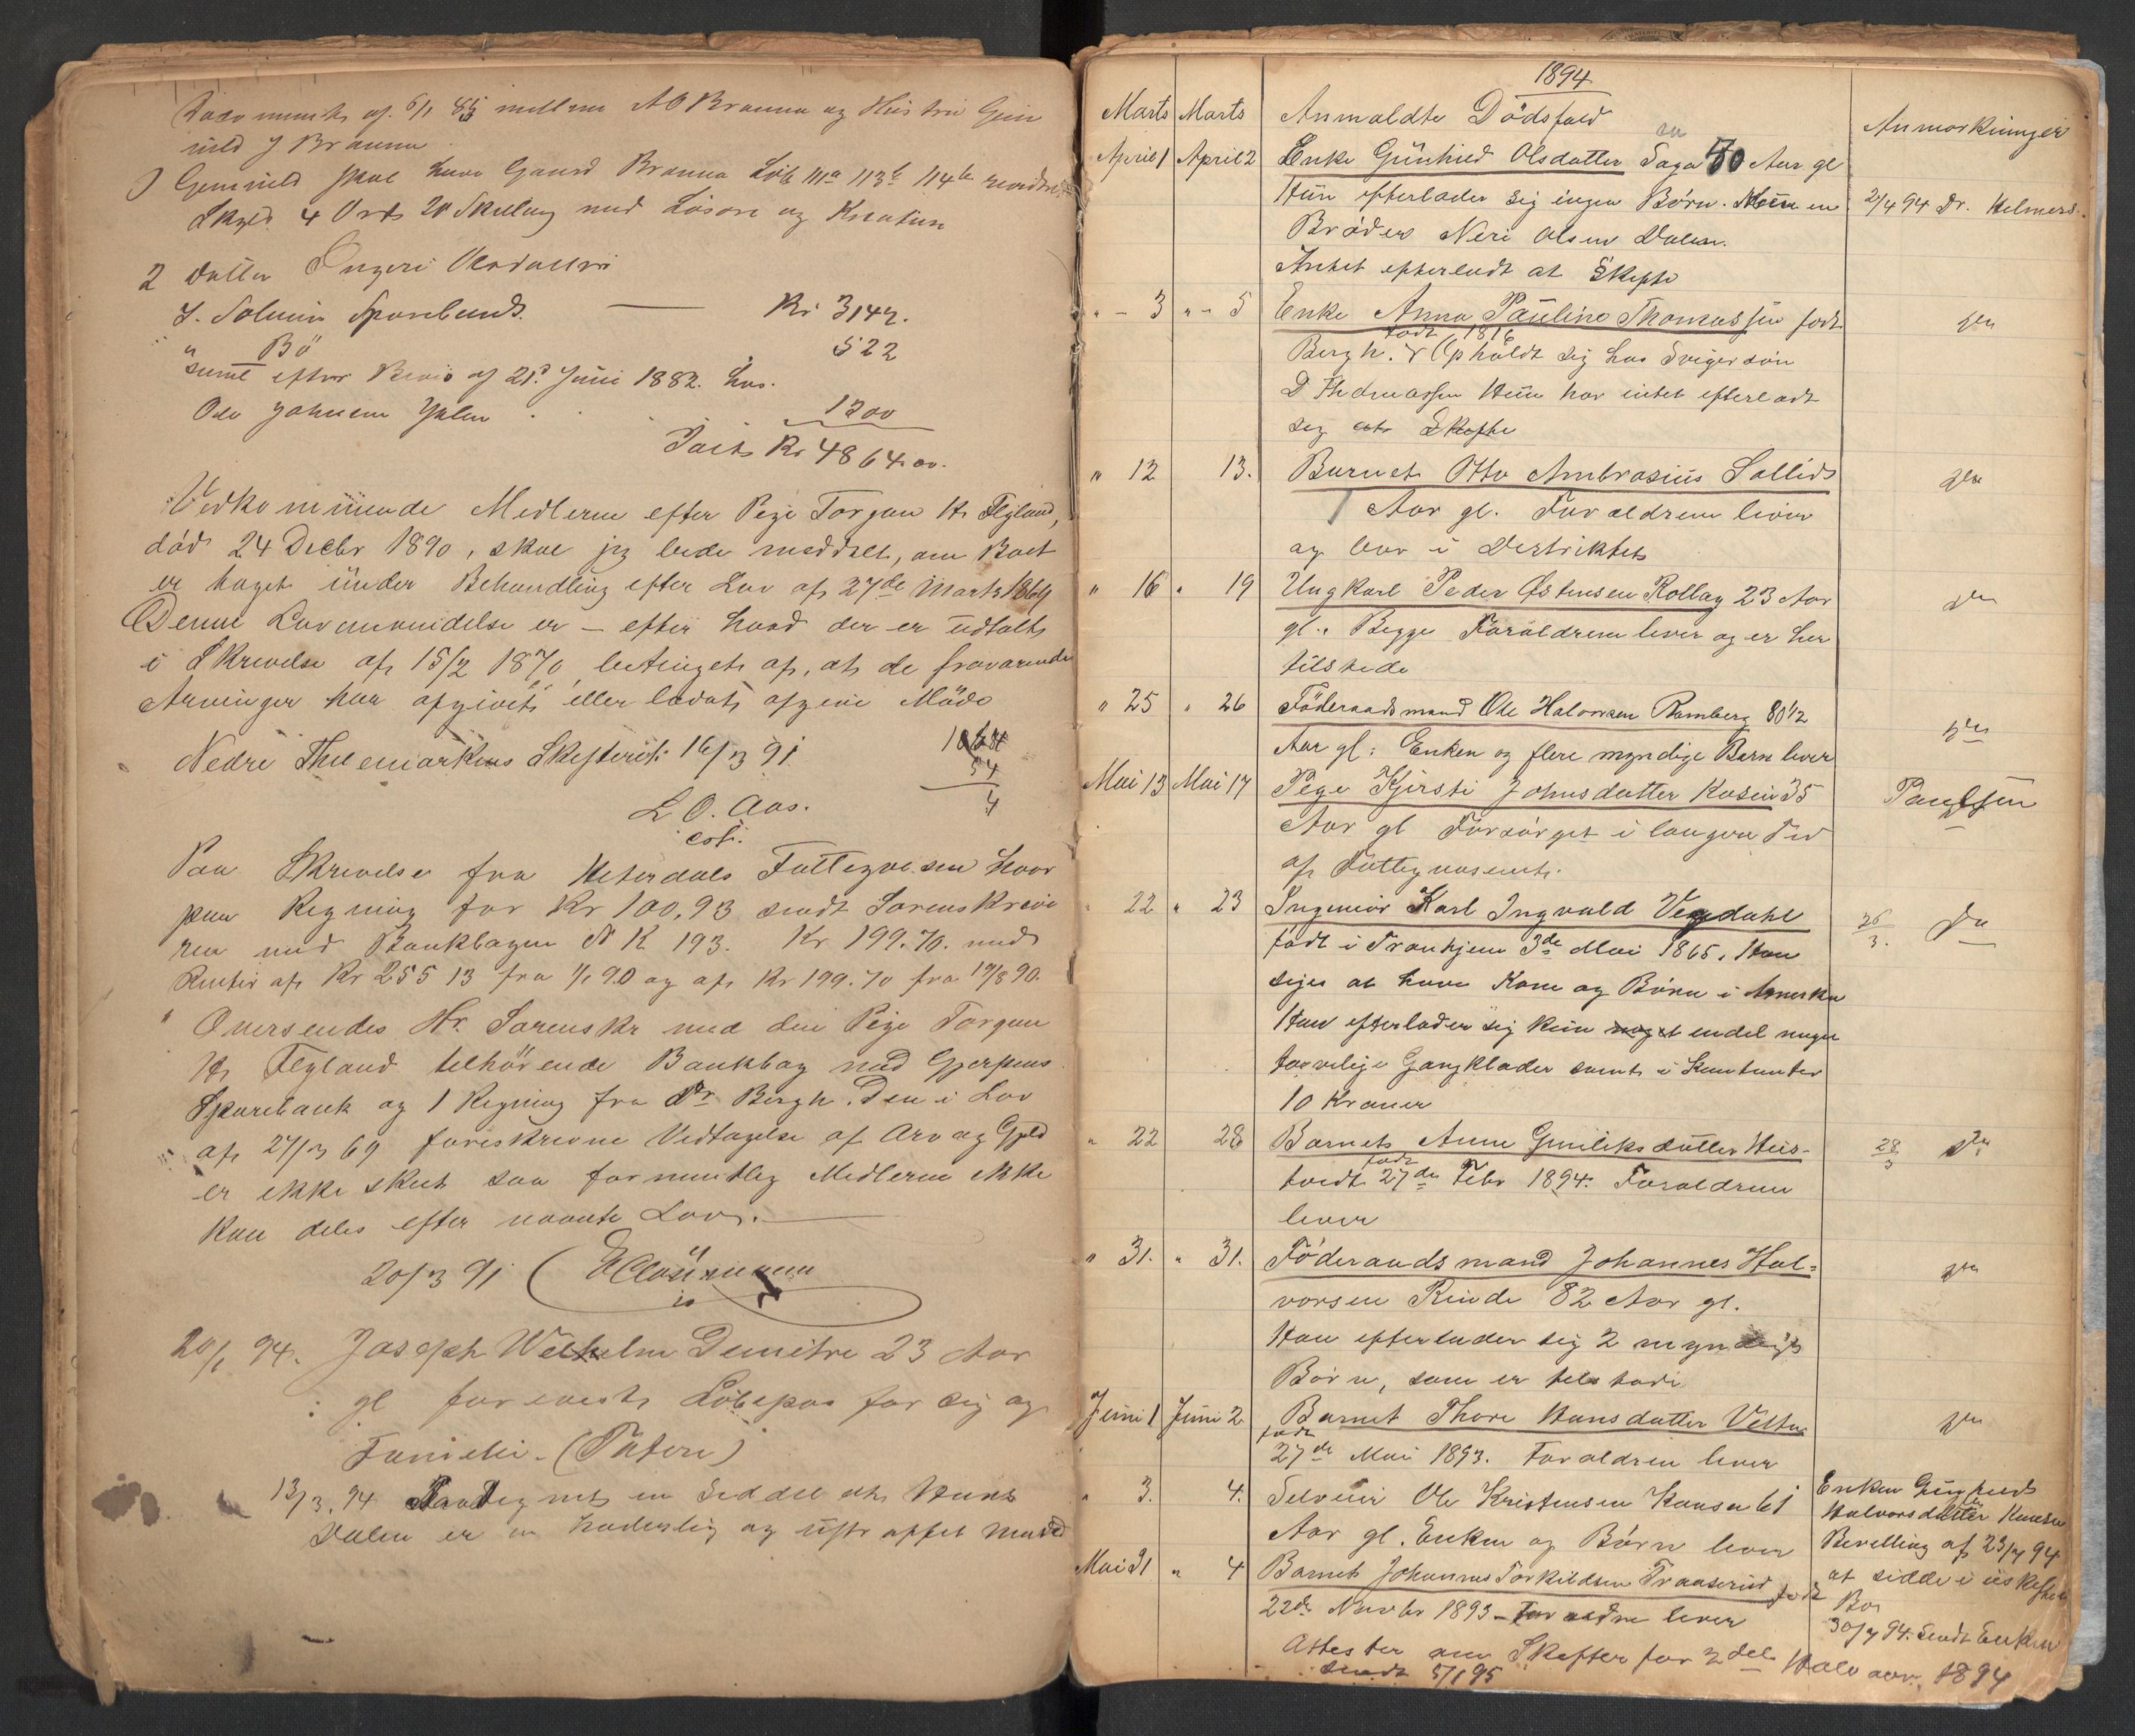 af 6/1 85 mellem A O Braana og Hustru Gun
nild J Braana
Gunnild skal have Gaard Braana Løb 111a 113b 114b
Skyld 4 Ort 20 Skilling med Løsøre og
2 Datter Ingeri
I Soluin Sparebank — Kr 3142.
" Bö 522
samt efter Bevis af 21de Juni 1882. hos
Ole Johnsen 1200
Kr 4864.00.
Vedkommende Midlerne efter Pige Torgun H. Flyland,
död 24 Decbr 1890, skal jeg bede meddelt, om Boet
er taget under Behandling efter Lov af 27de Marts 1869
Denne Lovanvendelse er – efter hvad der er udtalt
i Skrivelse af 15/2 1870, betinget af, at de fraværende
Arvinger har afgivet eller ladet afgive Möde
Nedre Thelemarkens Skifteret 16/3 91
54
4
L. O. Aas.
cst.
Paa Skrivelse fra Heterdals Fattigvæsen hvor
paa Regning for Kr 100,93 sendt Sorenskrive
ren med Bankbogen N K 193. Kr 199.70. med
Renter af Kr 255 13 fra 1/1 90 og af Kr 199.70 fra 19/8 90.
" Oversendes Hr. Sorenskr med den Pige Torgun
H. Flyland tilhörende Bankbog med Gjerpens
Sparebank og 1 Regning fra Dr Bergh. Den i Lov
af 27/3 69 foreskrevne Vedtagelse af Arv og Gjeld
er ikke skeet saa formentlig Midlerne ikke
kan deles efter nævnte Lov. —
20/3 91
20/1 94. Joseph Wilhelm Demitre 23 Aar
gl forevist Löbepas for sig og
Familie. (Tatere)
13/3. 94 en Seddel at Hans
Dalen er en og
1894
Marts Marts Anmeldte Dödsfald Anmærkninger
April 1 April 2 Enke Gunhild Olsdatter Saga 70 Aar gl
Hun efterlader sig ingen Börn. Kun en 2/4 94 Dr. Helmers.
Broder Neri Olsen Dalen.
Intet efterladt at Skifte
" – 3 " – 5 Enke Anna Pauline Thomassen født
født 1816
Bergh. Opholdt sig hos Svigersön
D Thomassen Hun har intet efterladt
sig at Skifte
" 12 13. Barnet Otto Ambrosius Sollid
1 Aar gl. Forældrene lever
og bor i Distriktet
" 16 " 19 Ungkarl Peder Østensen Rollag 23 Aar
gl. Begge Forældrene lever og er her
tilstede
" 25 " 26 Föderaadsmand Ole Halvorsen Ramberg 80 1/2
Aar gl: Enken og flere myndige Børn lever
Mai 13 Mai 17 Pige Kjersti Johnsdatter Kasin 35 Paulsen
Aar gl Forsörget i længere Tid
af Fattigvæsenet.
22 " 23 Ingeniör Karl Ingvald Vegdahl 26/3. Do
født i Tronhjem 3de Mai 1865. Han
siges at have Kone og Börn i Amerika
Han efterlader sig kun noget endel meget
tarvelige Gangklæder samt i Kontanter
10 Kroner
" 22 28 Barnet Anne Gunleiksdatter Heis- 28/3 Do
født
tvedt 27de Febr 1894. Forældrene
lever
" 31. " 31. Föderaadsmand Johannes Hal= Do
vorsen Rinde 82 Aar gl.
Han efterlader sig 2 myndige
Börn, som er tilstede
Juni 1 Juni 2 Barnet Thore Hansdatter Do
født
27de Mai 1893. Forældren lever
" 3. 4. Selveier Ole Kristensen Kaasa 61 Enken
Aar gl. Enken og Börn lever Halvorsdatter
Bevilling af 23/7 94
Mai 31 " 4 Barnet Johannes Torkildsen født at sidde i uskiftet
22de Novbr 1893 – Forældre lever Bo
30/7 94. Sendt Enken
Attester om Skifter for 2det Halv aar. 1894
sendt 5/1 95